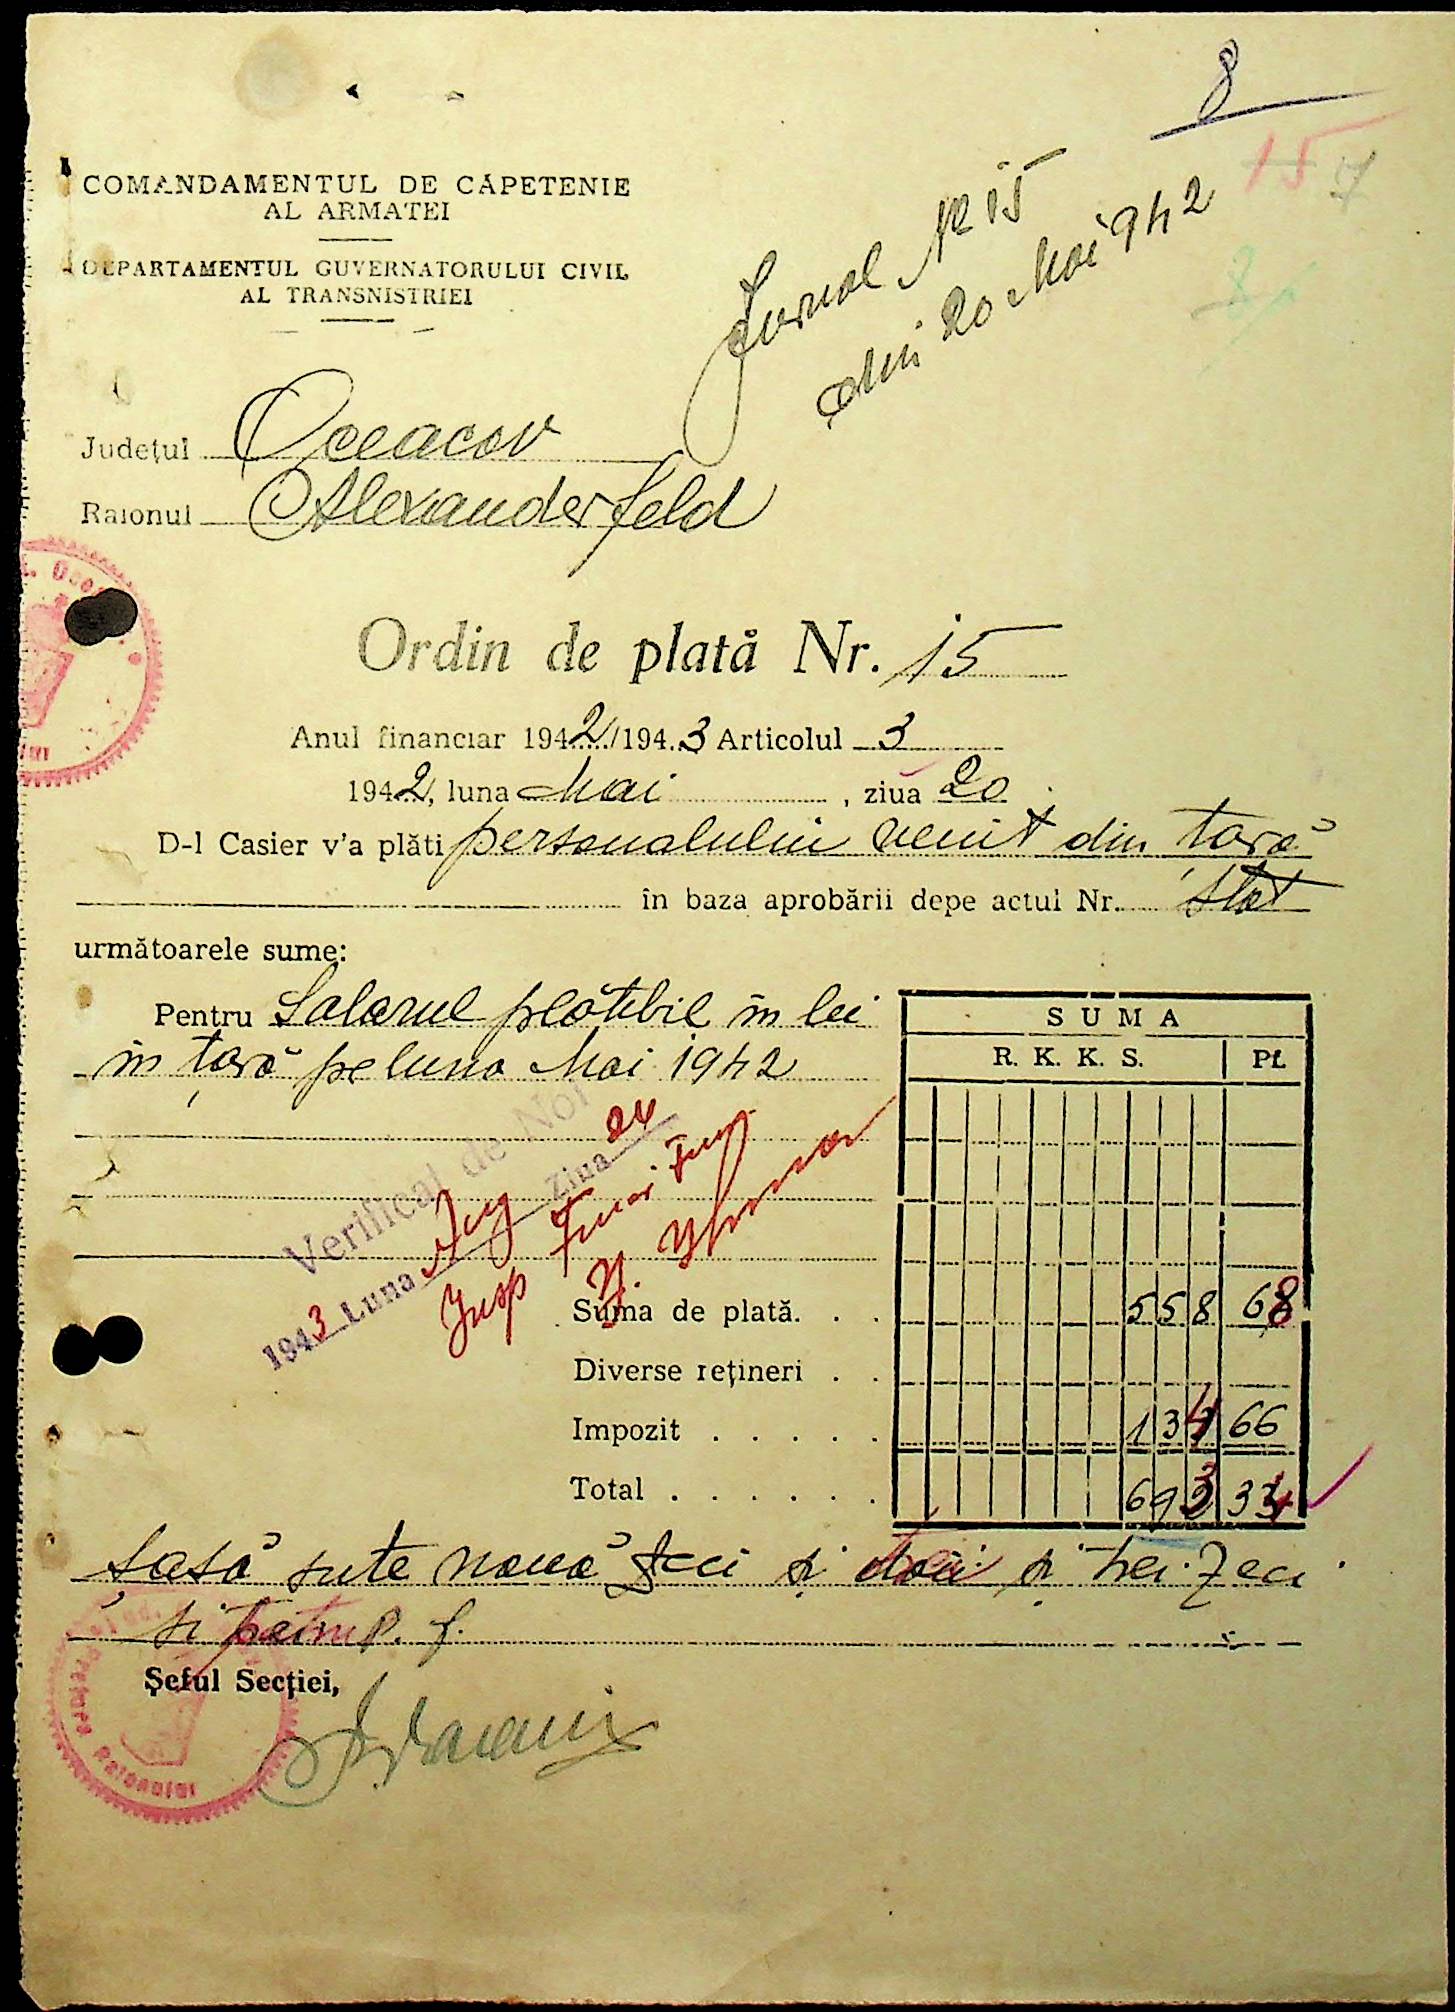 8
15 7
COMANDAMENTUL DE CĂPETENIE
AL ARMATEI
DEPARTAMENTUL GUVERNATORULUI CIVIL
AL TRANSNISTRIEI
Jurnal Nr 15
din 20 Mai 942
Județul Oceacov
Raionul Alexanderfeld
Ordin de plată Nr. 15
Anul financiar 1942/1943 Articolul 3
1942, luna Mai, ziua 20
D-l Casier v'a plăti personalului venit din țară
în baza aprobării depe actul Nr. stat
următoarele sume:
Pentru Salariul plătibil în lei
în țară pe luna Mai 1942
SUMA
R. K. K. S. Pf.
Verificat de Noi
1943 Luna Aug Ziua 24
Insp
Suma de plată. . . 558 68
Diverse rețineri . .
Impozit . . . . . 134 66
Total . . . . . . 693 34
șasă sute nouă zeci și trei și trei zeci
și patru p. f.
Șeful Secției,
Pretura Raionului